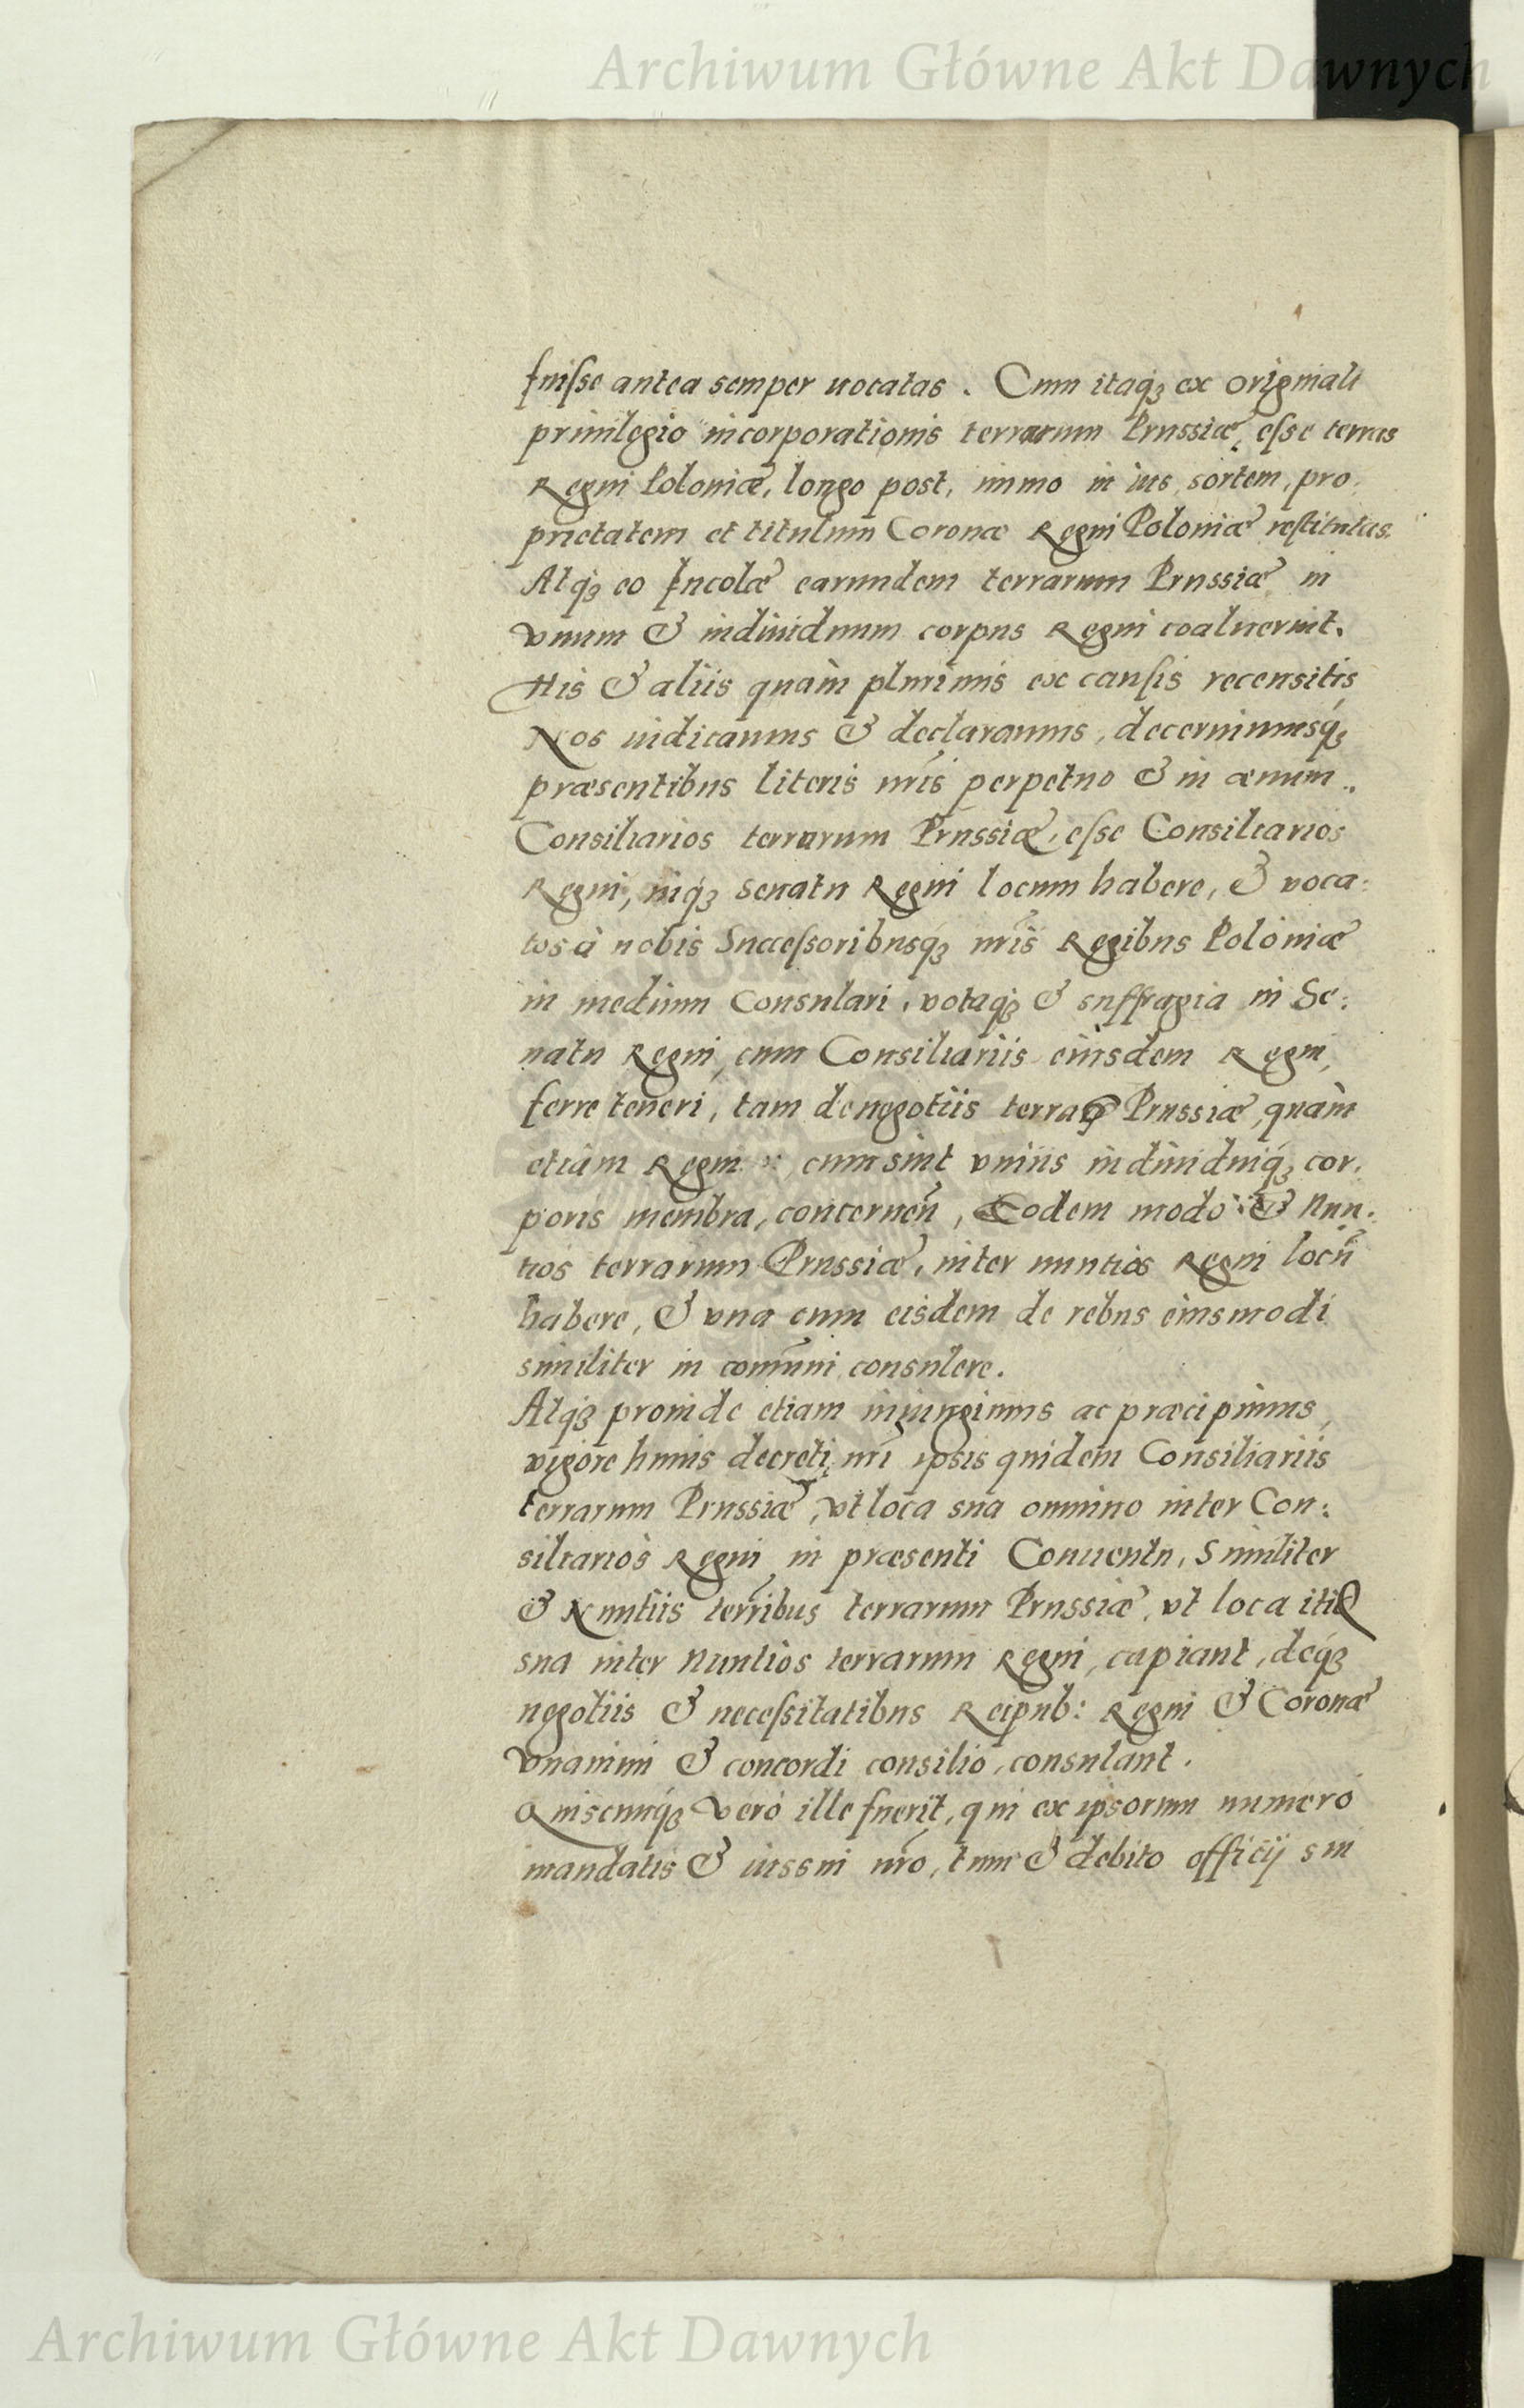 Archiwum Główne Akt Dawnych
fuisse antea semper uocatas. Cum itaqꝫ ex originali
priuilegio incorporationis terrarum Prussiæ, esse terras
Regni Poloniæ, longo post, immo in ius, sortem, pro,
prietatem et titulum Coronæ Regni Poloniæ restitutas.
Atqꝫ eo Incolæ earundem terrarum Prussiæ in
vnum & indiuiduum corpus Regni coaluerint.
His & aliis quàm plurimis ex causis recensitis
Nos iudicauimus & declarauimus, decernimusqꝫ
præsentibus literis nr̃is perpetuo & in æuum..
Consiliarios terrarum Prussiæ, esse Consiliarios
Regni, inqꝫ Senatu Regni locum habere, & voca:
tos à nobis Successoribusqꝫ nr̃is Regibus Poloniæ
in medium Consulari, votaqꝫ & suffragia in Se:
natu Regni, cum Consiliariis eiusdem Regni,
ferre teneri, tam de negotiis terraꝝ Prussiæ, quàm
etiam Regni, cum sint vnius indiuiduiqꝫ cor,
poris membra, concerneñ, Eodem modo & Nun,
tios terrarum Prussiæ, inter nuntios Regni locũ
habere, & vna cum eisdem de rebus eiusmodi
similiter in com̃uni consulere.
Atqꝫ proinde etiam iniungimus ac præcipimus,
vigore huius decreti nr̃i ipsis quidem Consiliariis
terrarum Prussiæ, vt loca sua omnino inter Con:
siliarios Regni in præsenti Conuentu, Similiter
& Nuntiis terr̃ibus terrarum Prussiæ, vt loca itiꝺ
sua inter Nuntios terrarum Regni, capiant, deqꝫ
negotiis & necessitatibus Reipub: Regni & Coronæ
vnanimi & concordi consilio, consulant.
Quiscunqꝫ verò ille fuerit, qui ex ipsorum numero
mandatis & iussui nr̃o, tum & debito officij sui
Archiwum Główne Akt Dawnych